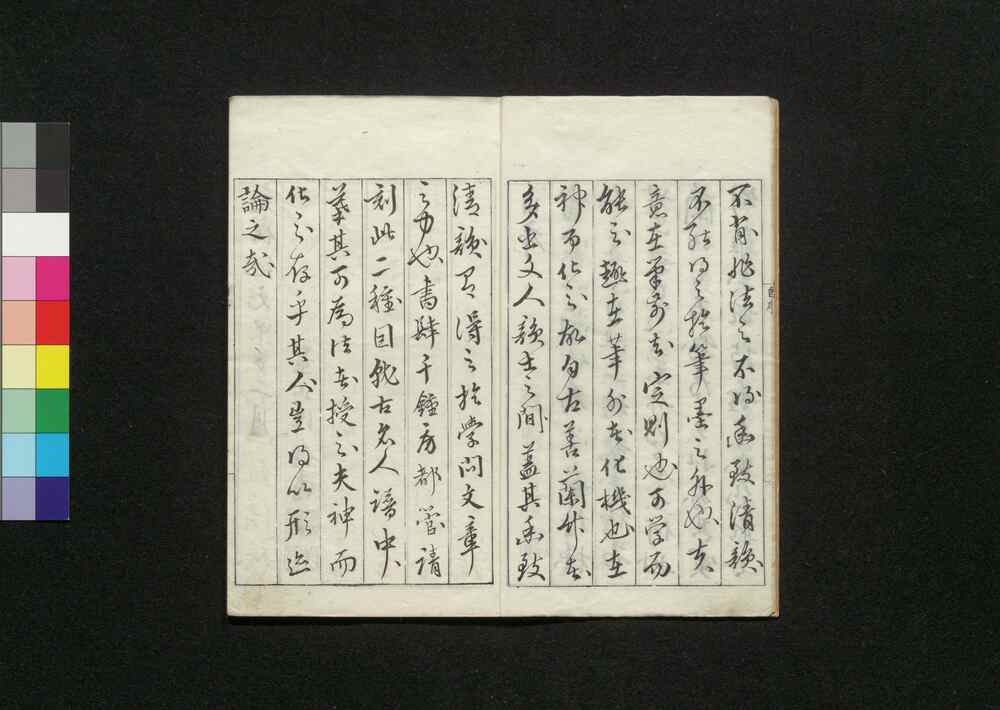 不肖非法之不得幽致清韻
不能得之於筆墨之外也夫
意在筆前者定則也可学而
能之趣在筆外者化機也在
神而化之故自古善蘭竹者
多出文人韻士之間蓋其幽致
清韻得之於学問文章
之力也書肆千鍾房都営請
刻此二種因就古名人譜中
其可為法者授之夫神而
化之存乎其人豈得以形迹
論之哉